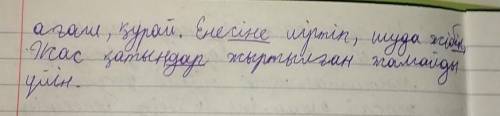 ағаш, құрай. Енесіне иіртіп, шуда жібін,
Жас қатындар жыртылған жамайды
үйін.